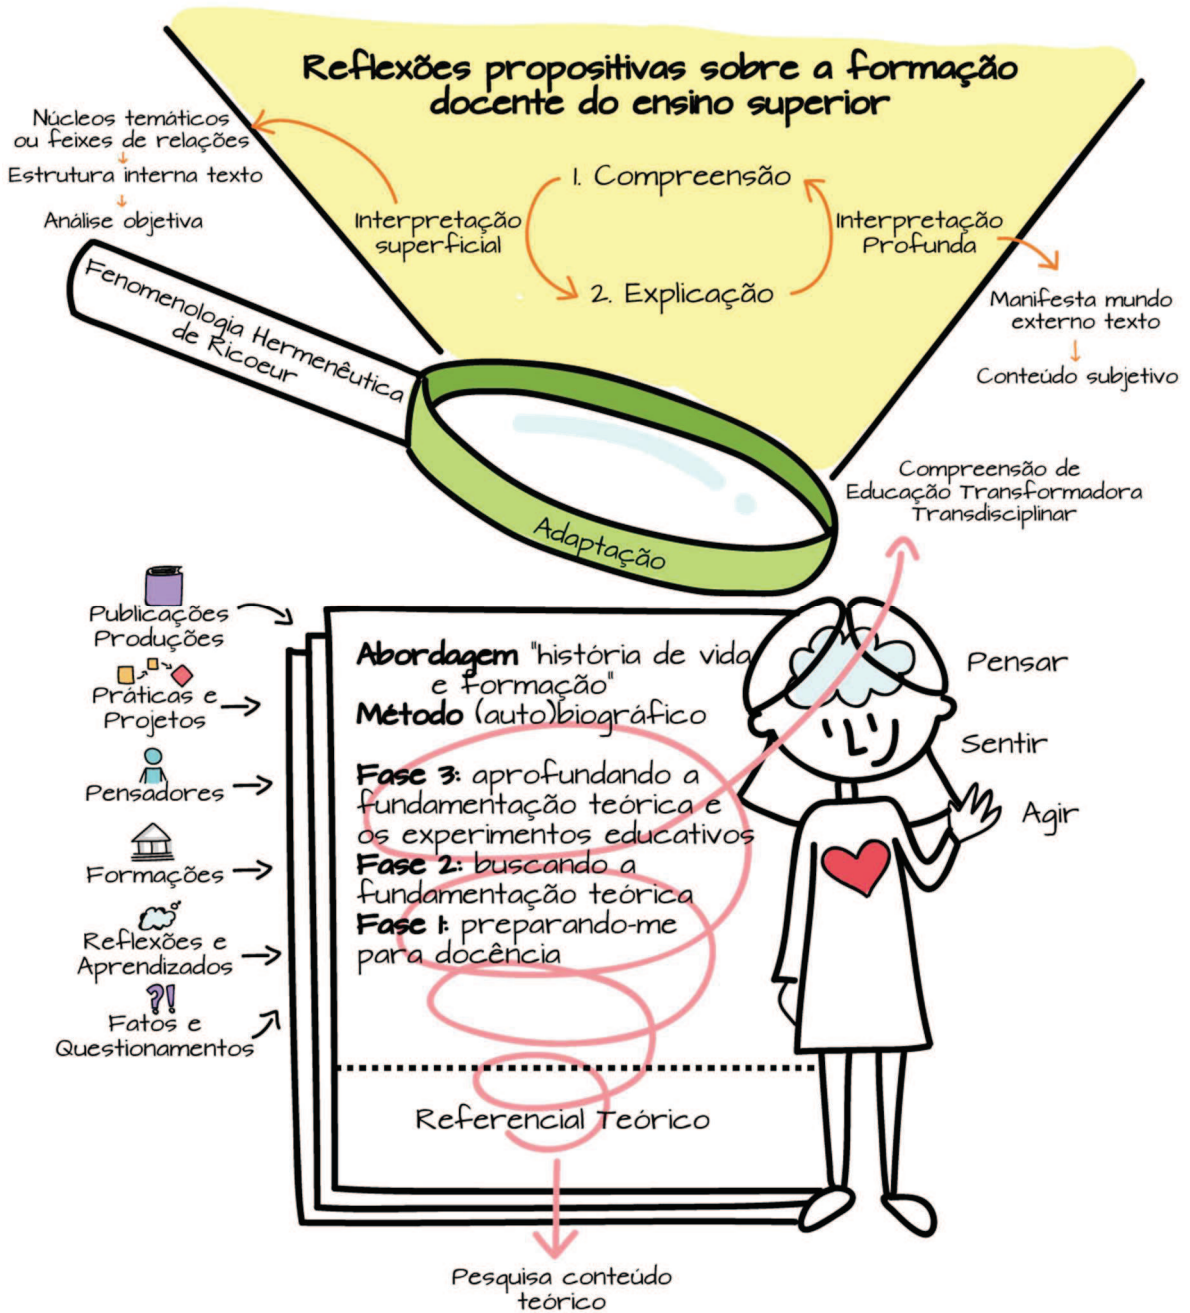 Reflexões propositivas sobre a formação
docente do ensino superior
Núcleos temáticos
ou feixes de relações
Estrutura interna texto
Análise objetiva
Interpretação
superficial
1. Compreensão
2. Explicação
Interpretação
Profunda
Manifesta mundo
externo texto
Conteúdo subjetivo
Fenomenologia Hermenêutica
de Ricoeur
Adaptação
Compreensão de
Educação Transformadora
Transdisciplinar
Publicações
Produções
Práticas e
Projetos
Pensadores
Formações
Reflexões e
Aprendizados
?!
Fatos e
Questionamentos
Abordagem "história de vida
e formação"
Método (auto)biográfico
Fase 3: aprofundando a
fundamentação teórica e
os experimentos educativos
Fase 2: buscando a
fundamentação teórica
Fase 1: preparando-me
para docência
Referencial Teórico
Pensar
Sentir
Agir
Pesquisa conteúdo
teórico